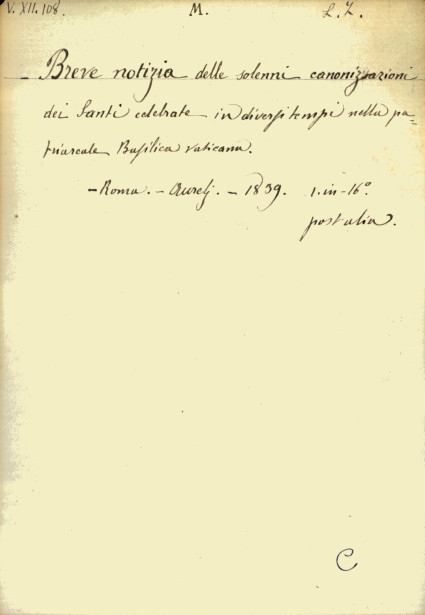 V. XII. 108. M. L. Z.
– Breve notizia delle solenni canonizzazioni
dei Santi celebrate in diversi tempi nella pa-
triarcale Basilica vaticana.
– Roma. – Aurelj. – 1839. 1. in-16°
post alia.
C